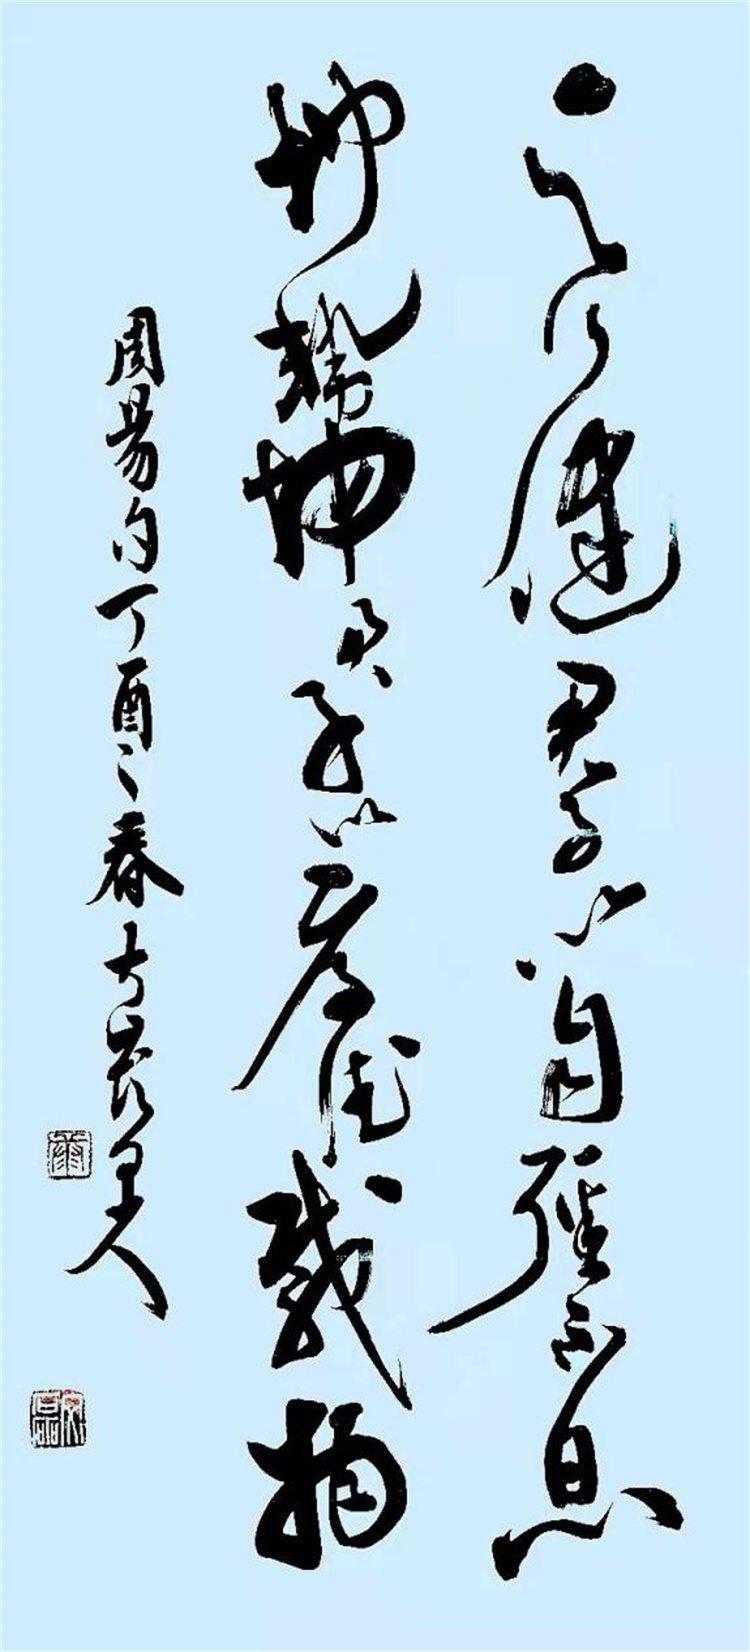 天行健君子以自強不息
地勢坤君子以厚德載物
周易句丁酉之春人